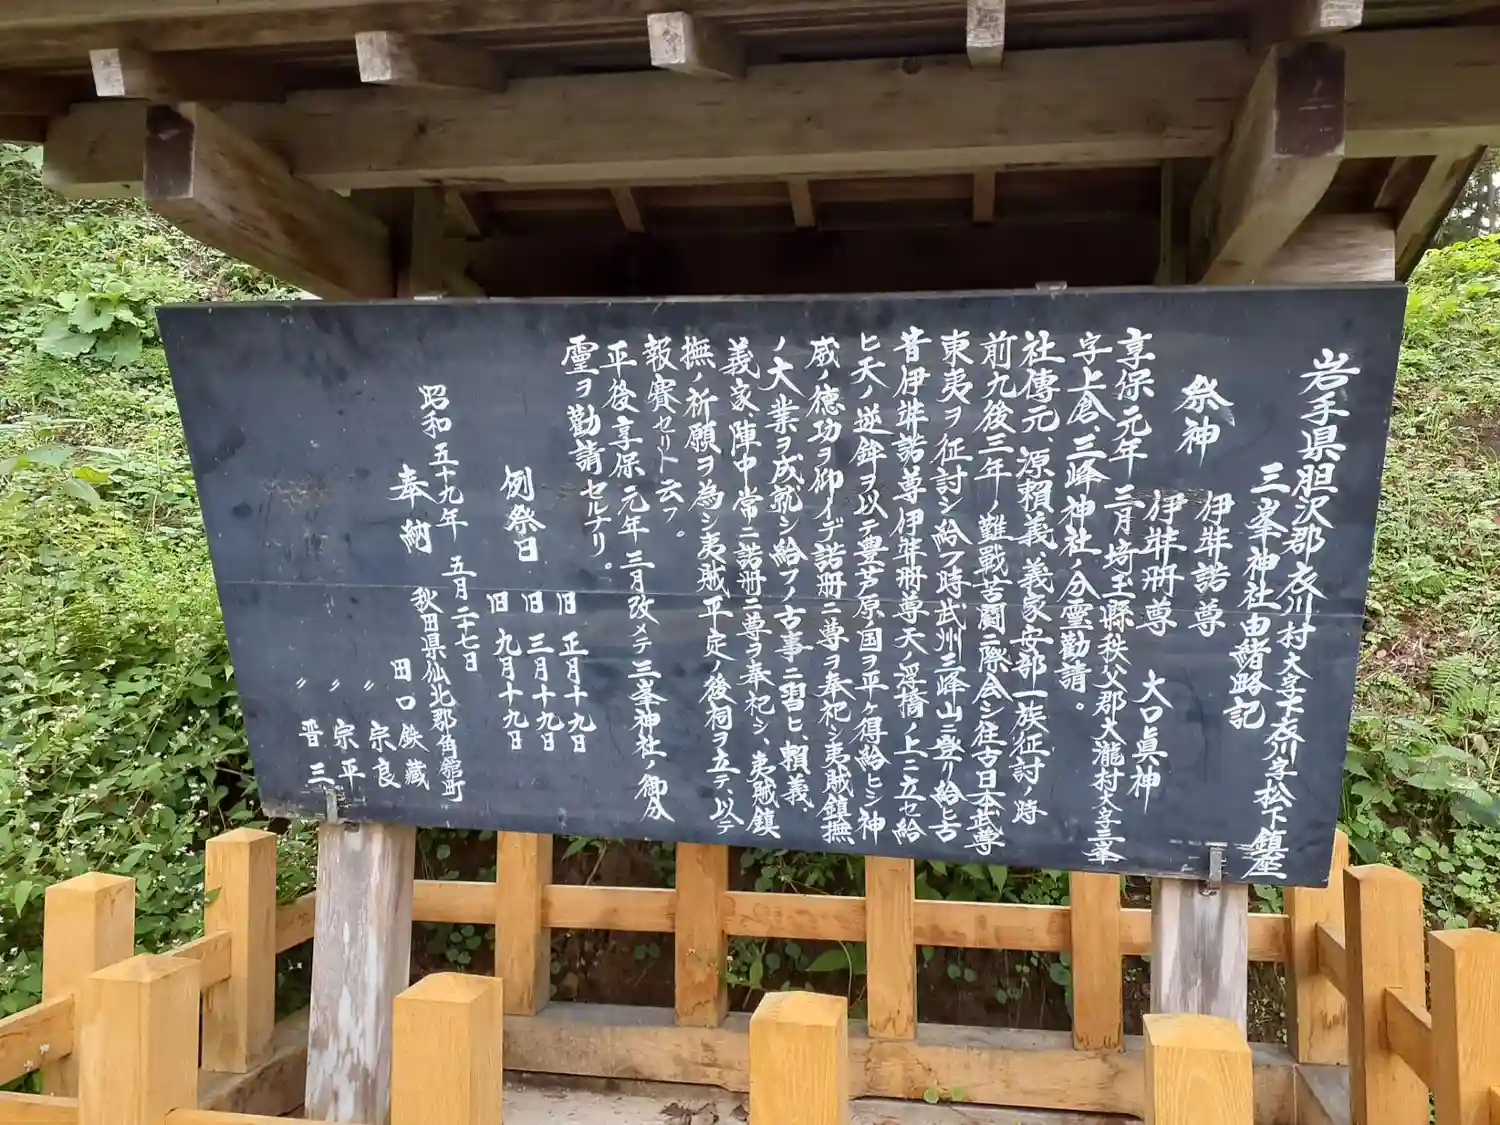 岩手県胆沢郡衣川村大字下衣川字松下鎮座
三峯神社由緒略記
祭神
伊弉諾尊
伊弉冊尊
大口眞神
享保元年三月埼玉縣秩父郡大瀧村大字三峯
字上倉、三峰神社ノ分霊勧請。
社傳元、源頼義、義家安部一族征討ノ時
前九後三年ノ難戦苦闘ニ際会シ往古日本武尊
東夷ヲ征討シ給フ時武州三峰山ニ登リ給ヒ古
昔伊弉諾尊伊弉冊尊天ノ浮橋ノ上ニ立セ給
ヒ天ノ逆鉾ヲ以テ豊芦原ノ国ヲ平ケ得給ヒシ神
威徳功ヲ仰イデ諾冊ニ尊ヲ奉祀シ夷賊鎮撫
ノ大業ヲ成就シ給フノ古事ニ習ヒ、頼義、
義家、陣中常ニ諾冊ニ尊ヲ奉祀シ、夷賊鎮
撫ノ祈願ヲ為シ夷賊平定ノ後祠ヲ立テ、以テ
報賽セリト云フ。
平後享保元年三月改メテ三峯神社ノ御分
霊ヲ勧請セルナリ。
例祭日
旧 正月十九日
旧 三月十九日
旧 九月十九日
昭和五十九年 五月二十七日
奉納
秋田県仙北郡角館町
田口鉄藏
〃 宗良
〃 宗平
〃 晋三